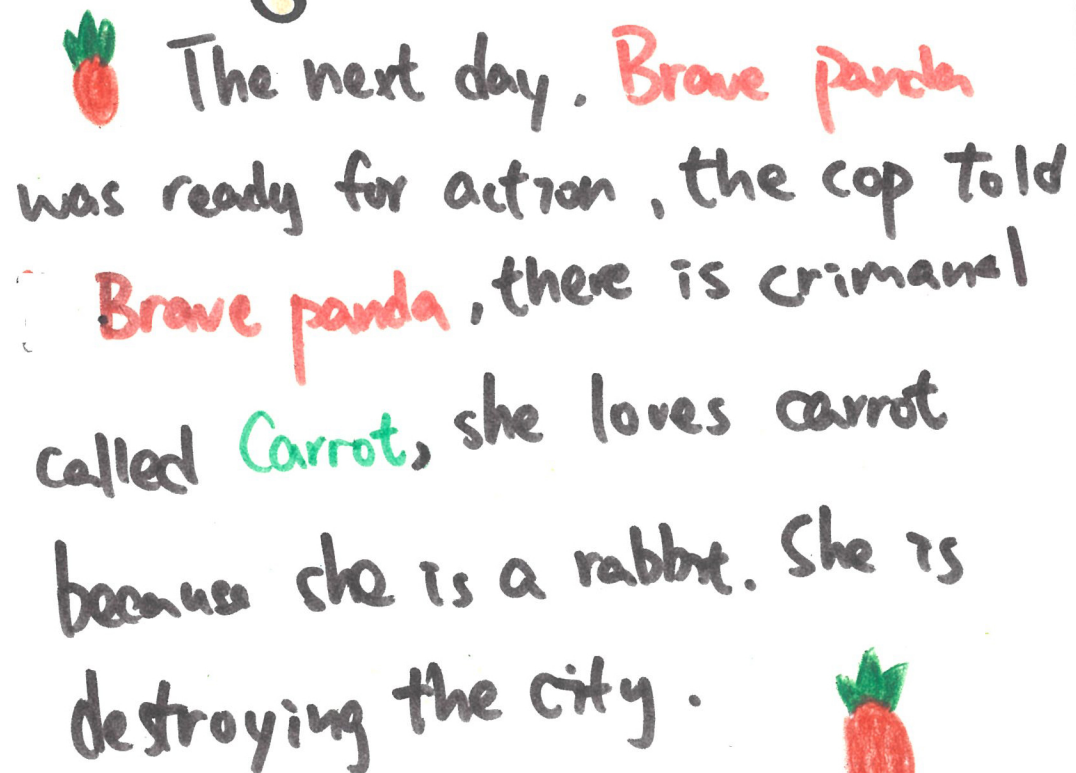 The next day. Brave panda
was ready for action, the cop told
Brave panda, there is crimanal
called Carrot, she loves carrot
because she is a rabbit. She is
destroying the city.